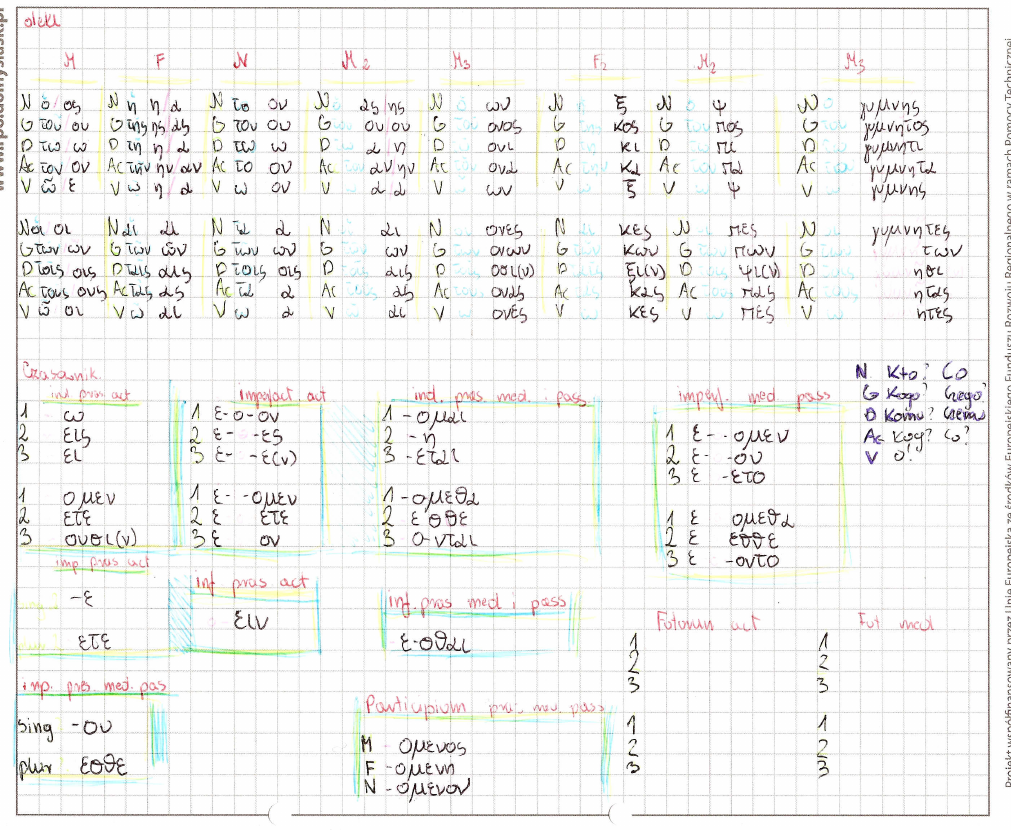 M F N M2 M3 F2 M2 M3
N ὁ ος N ἡ η α N το ον N ὁ ας ης N ὁ ων N ἡ ξ N ὁ ψ N ὁ γυμνης
G του ου G της ης ας G του ου G του ου ου G του ονος G της κος G του πος G του γυμνητος
D τω ω D τη η α D τω ω D α η D ονι D κι D πι D γυμνητι
Ac τον ον Ac την ην αν Ac το ον Ac αν ην Ac ονα Ac κα Ac πα Ac γυμνητα
V ω ε V ω η α V ω ον V α α V ων V ξ V ψ V γυμνης
N οἱ οι N αι αι N τα α N αι N ονες N κες N πες N γυμνητες
G των ων G των ων G των ων G ων G ονων G κων G πων G των
D τοις οις D ταις αις D τοις οις D αις D οσι(ν) D ξι(ν) D ψι(ν) D ησι
Ac τους ους Ac τας ας Ac τα α Ac ας Ac ονας Ac κας Ac πας Ac ητας
V ω οι V ω αι V ω α V αι V ονες V κες V πες V ητες
Czasownik.
ind pras act
1 ω
2 εις
3 ει
1 ομεν
2 ετε
3 ουσι(ν)
imperfect. act
1 ε-ο-ον
2 ε- -ες
3 ε- -ε(ν)
1 ε- -ομεν
2 ε ετε
3 ε ον
ind. pres med. i pass
1 -ομαι
2 -η
3 -εται
1 -ομεθα
2 εσθε
3 ο-νται
imperf. med. pass
1 ε- -ομεν
2 ε- -ου
3 ε -ετο
1 ε ομεθα
2 ε εσθε
3 ε -οντο
N. Kto? Co
G Kogo? Czego?
D Komu? Czemu
Ac Kog? co?
V o!
imp pras act
-ε
ετε
inf pras act
ειν
inf. pras med i pass
ε-σθαι
imp. pres. med. pas
sing -ου
plur εσθε
Participium pras med. pass
M - ομενος
F -ομενη
N -ομενον
Futurum act
1
2
3
1
2
3
Fut med
1
2
3
1
2
3